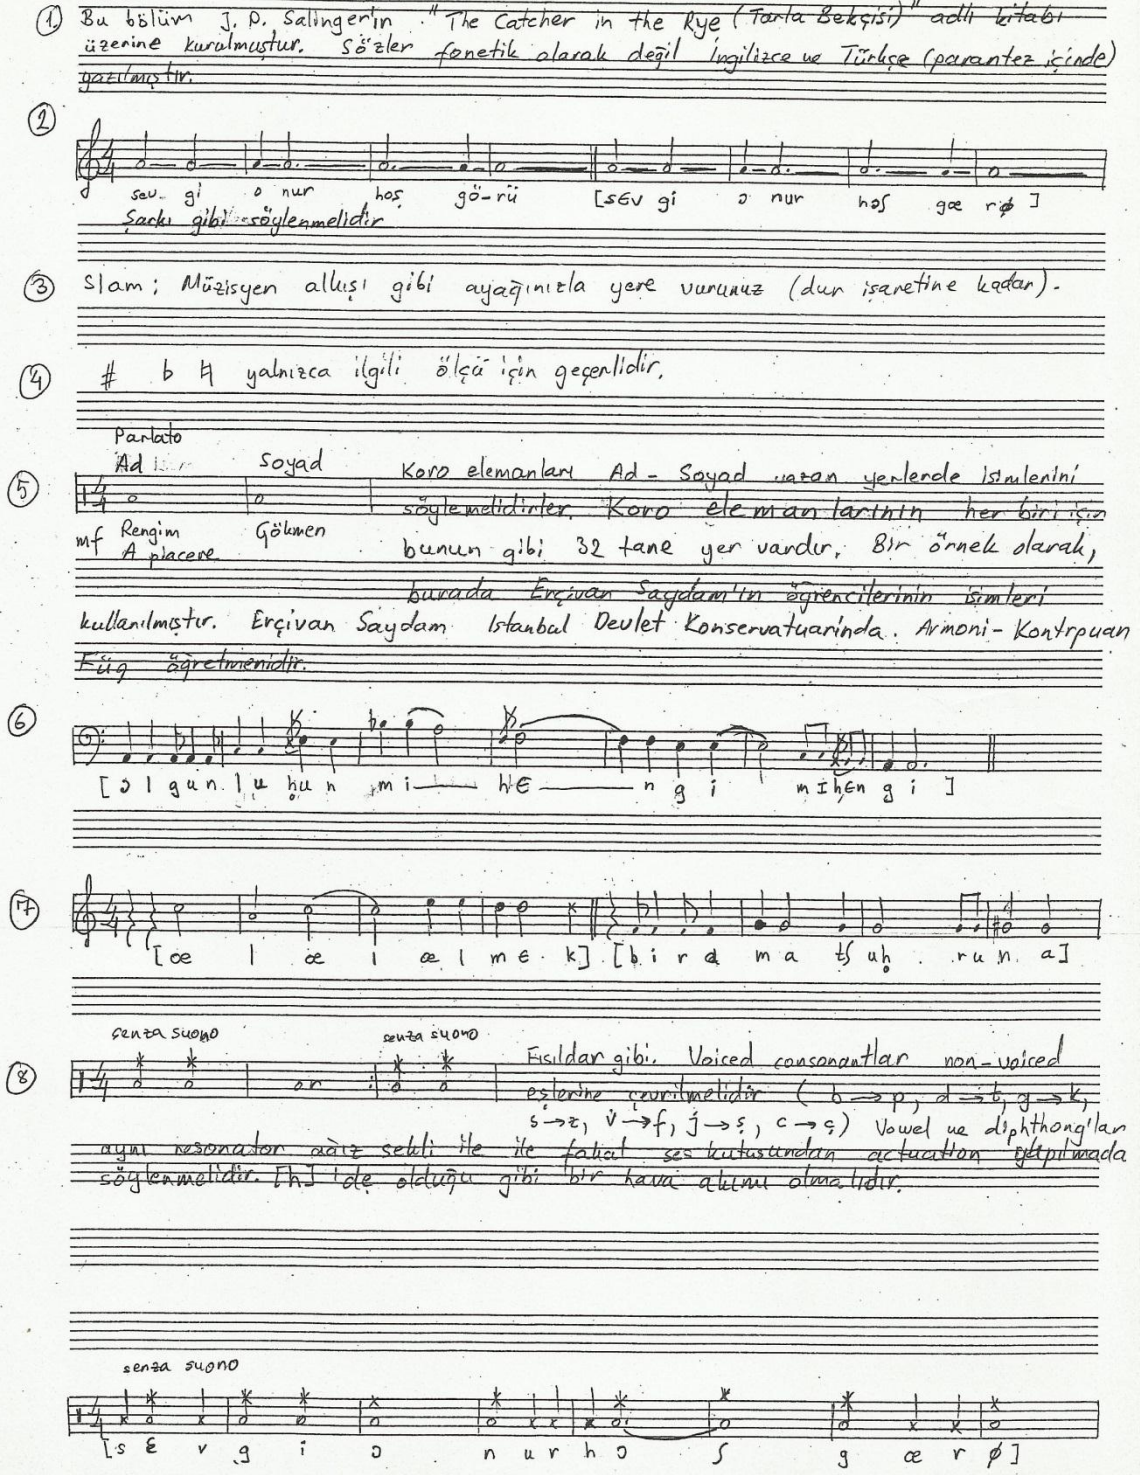 ① Bu bölüm J. D. Salinger'in "The Catcher in the Rye (Tarla Bekçisi)" adlı kitabı
üzerine kurulmuştur. Sözler fonetik olarak değil İngilizce ve Türkçe (parantez içinde)
yazılmıştır.
②
sev- gi o nur hoş gö-rü [sɛv gi ɔ nur hɔʃ gœ rø]
Şarkı gibi söylenmelidir
③ Slam: Müzisyen alkışı gibi ayağınızla yere vurunuz (dur işaretine kadar).
④ # b ♮ yalnızca ilgili ölçü için geçerlidir.
Parlato
Ad Soyad Koro elemanları Ad - Soyad yazan yerlerde isimlerini
⑤ söylemelidirler. Koro elemanlarının her biri için
mf Rengim Gökmen
A piacere bunun gibi 32 tane yer vardır. Bir örnek olarak,
burada Erçivan Saydam'ın öğrencilerinin isimleri
kullanılmıştır. Erçivan Saydam Istanbul Devlet Konservatuarında. Armoni-Kontrpuan
Füg öğretmenidir.
⑥
[ɔ l g u n l u h̥ u n m i h ɛ n g i m ɪ h̥ ɛ n g i ]
⑦
[œ l œ l œ l m ɛ k] [b i r d a m a tʃ u h̥ r u n a]
senza suono senza suono
⑧ or Fısıldar gibi. Voiced consonantlar non-voiced
eşlerine çevrilmelidir ( b→p, d→t, g→k,
s→z, v→f, j→ş, c→ç) Vowel ve diphthong'lar
aynı resonator ağız şekli ile ile fakat ses kutusundan actuation yapılmada
söylenmelidir. [h] 'de olduğu gibi bir hava akımı olmalıdır.
senza suono
[s ɛ v g i ɔ n u r h ɔ ʃ g œ r ø]